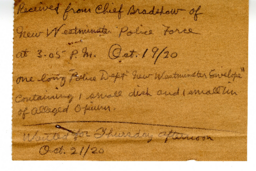 Received from Chief Bradshaw of
New Westminster Police Force
at 3-05 P.M. Oct. 19/20
one long Police Dept "New Westminster Envelope"
Containing 1 small dish and 1 small tin
of Alleged Opium.
for Thursday afternoon
Oct. 21/20